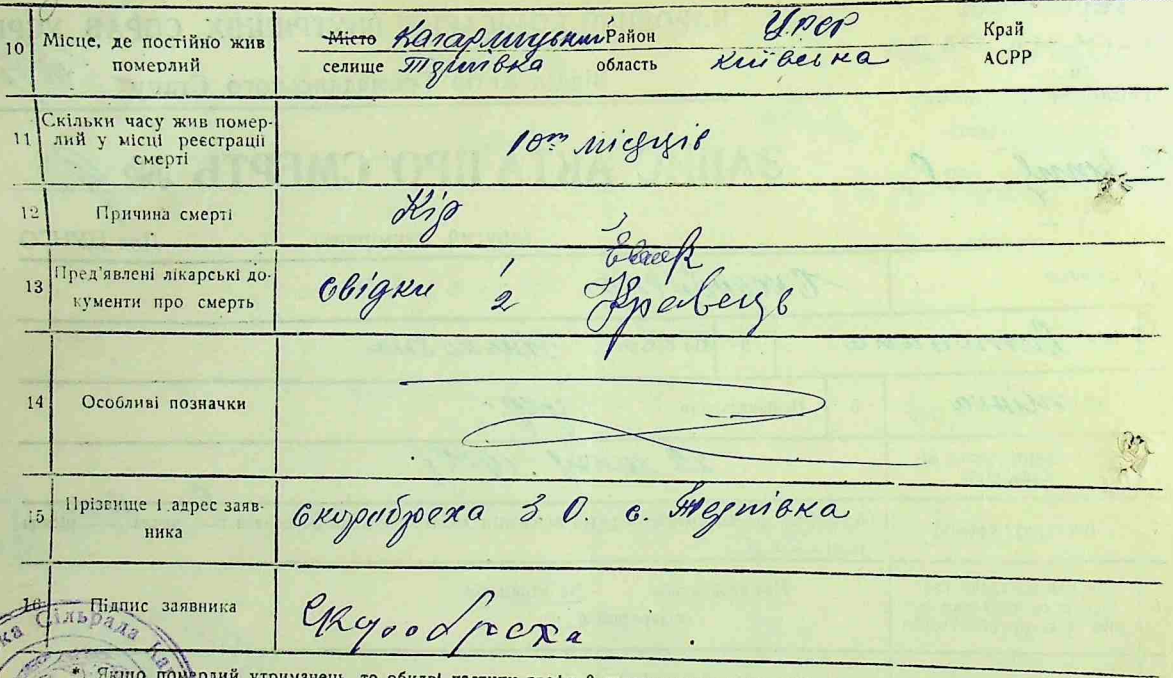 10 Місце, де постійно жив померлий
Місто Кагарлицький Район УРСР Край
селище область Київська АСРР
11 Скільки часу жив помер-
лий у місці реєстрації
смерті
10 місяців
12 Причина смерті Кір
13 Пред'явлені лікарські до-
кументи про смерть
свідки 1
2 Кравець
14 Особливі позначки
15 Прізвище і адрес заяв-
ника
Скоробреха З О с.
16 Підпис заявника Скоробреха
Сільрада
* Якщо померлий утриманець, то обидві